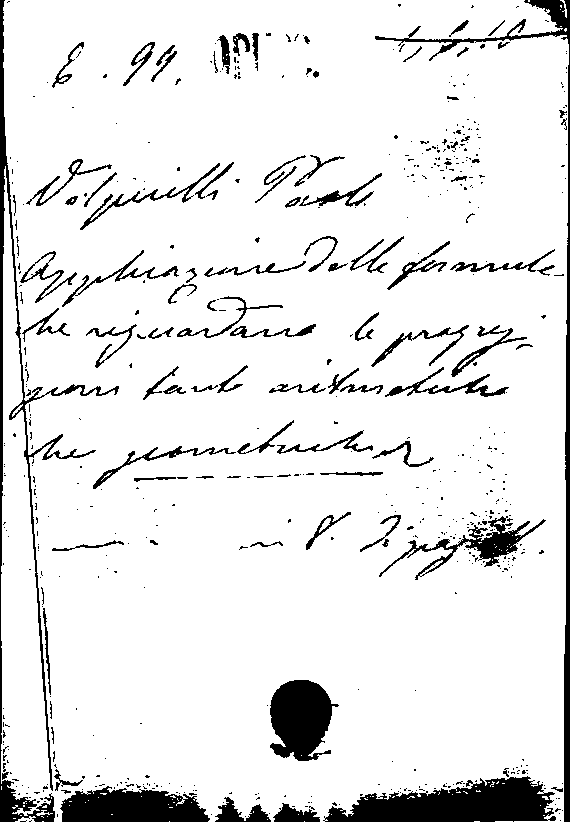 E. 99. OPUSC.
Volpicelli Paolo
Applicazione delle formule
che riguardano le progres-
sioni tanto aritmetiche
che geometriche
in 8. di pag.